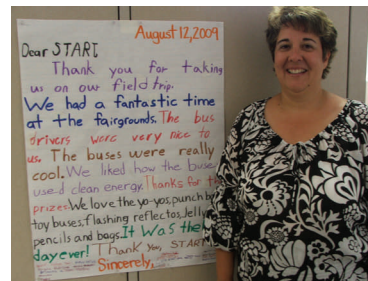 August 12, 2009
Dear START,
Thank you for taking
us on our field trip.
We had a fantastic time
at the fairgrounds. The bus
drivers were very nice to
us. The buses were really
cool. We liked how the buses
used clean energy. Thanks for the
prizes. We love the yo-yos, punch
toy buses, flashing reflectos, Jelly
pencils and bags. It Was the
day ever! Thank You, START
Sincerely,